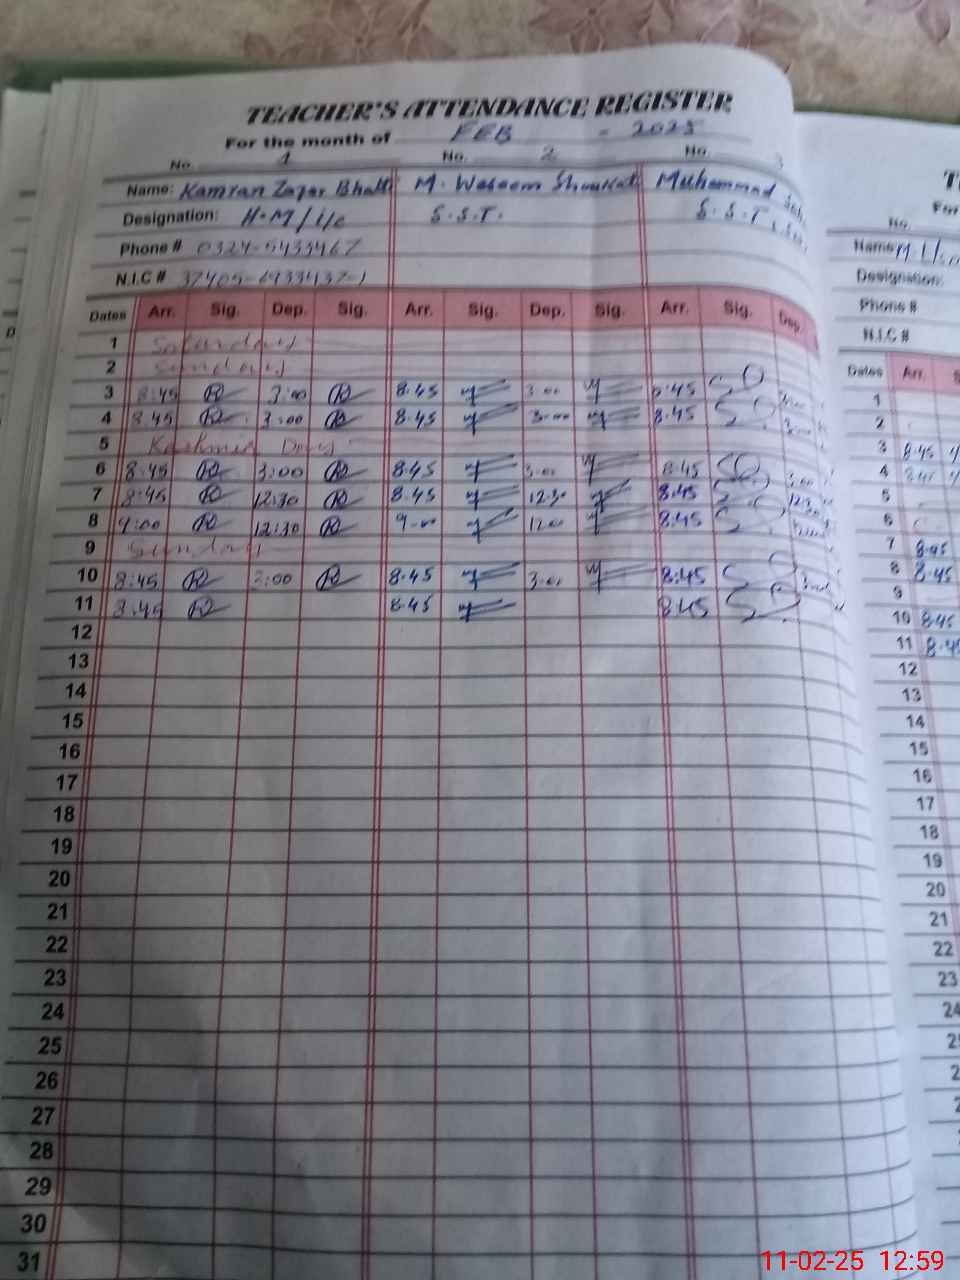 TEACHER'S ATTENDANCE REGISTER
For the month of FEB - 2025
No. 1 No. 2 No. 3
Name: Kamran Zafar Bhatti M. Waseem Shoukat Muhammad
Designation: H.M/I/C S.S.T. S.S.T
Phone # 0324-5433467
N.I.C # 37405-
Dates Arr. Sig. Dep. Sig. Arr. Sig. Dep. Sig. Arr. Sig. Dep.
1 Saturday
2 Sunday
3 8:45 3:00 8.45 3:00 8:45
4 8:45 3:00 8.45 3:00 8.45
5 Kashmir Day
6 8:45 3:00 8.45 3:00 8:45
7 8:45 12:30 8.45 12:30 8:45 12:30
8 9:00 12:30 9-00 12:00 8:45
9 Sunday
10 8:45 3:00 8.45 3:00 8:45
11 8:45 8.45 8:45
12
13
14
15
16
17
18
19
20
21
22
23
24
25
26
27
28
29
30
31
No.
Name M.
Designation:
Phone #
N.I.C #
Dates Arr.
1
2
3 8.45
4 8:45
5
6
7 8:45
8 8.45
9
10 8:45
11 8.45
12
13
14
15
16
17
18
19
20
21
22
23
11-02-25 12:59